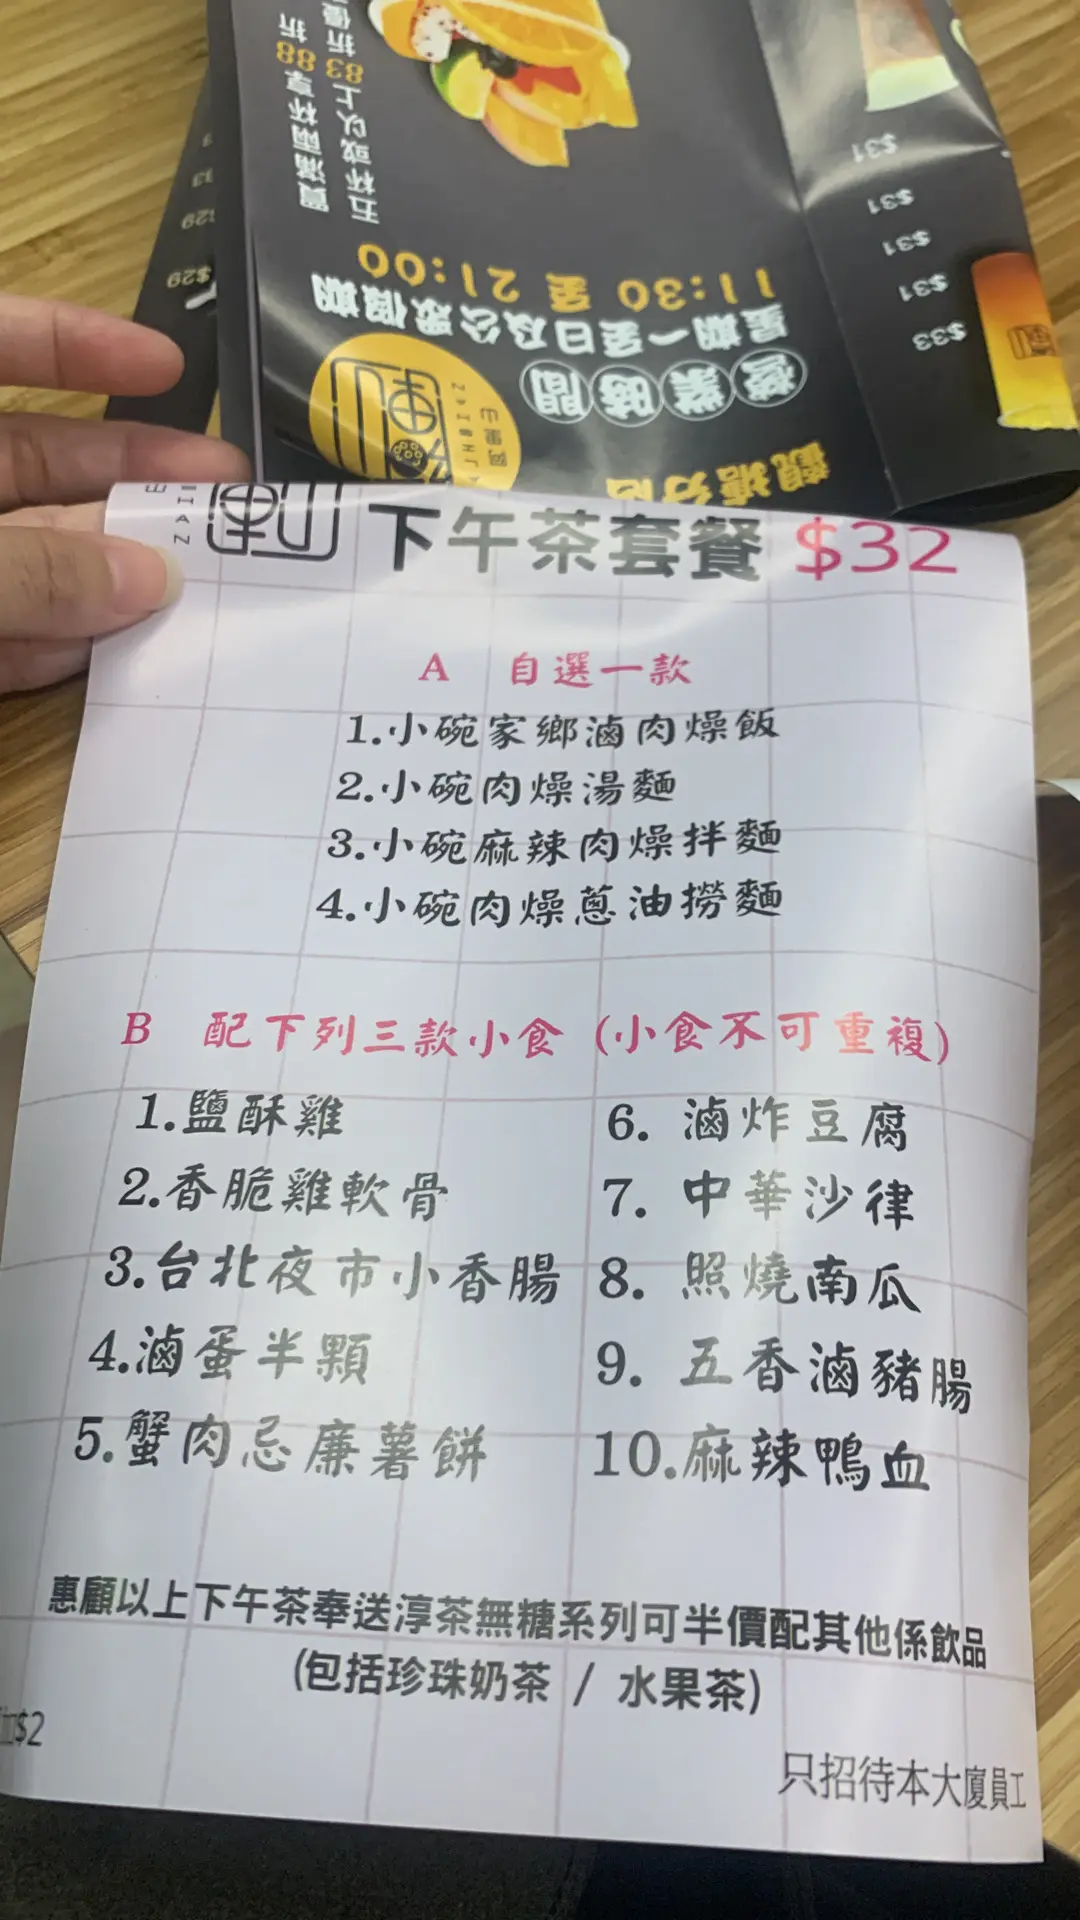 買滿兩杯享 88 折
五杯或以上 83 折優
$29
$29
$31
$31
$31
$31
$33
11:30 至 21:00
星期一至日及公眾假期
營業時間
觀塘分店
下午茶套餐 $32
A 自選一款
1.小碗家鄉滷肉燥飯
2.小碗肉燥湯麵
3.小碗麻辣肉燥拌麵
4.小碗肉燥蔥油撈麵
B 配下列三款小食 (小食不可重複)
1.鹽酥雞
2.香脆雞軟骨
3.台北夜市小香腸
4.滷蛋半顆
5.蟹肉忌廉薯餅
6. 滷炸豆腐
7. 中華沙律
8. 照燒南瓜
9. 五香滷豬腸
10.麻辣鴨血
惠顧以上下午茶奉送淳茶無糖系列可半價配其他係飲品
(包括珍珠奶茶 / 水果茶)
加$2
只招待本大廈員工